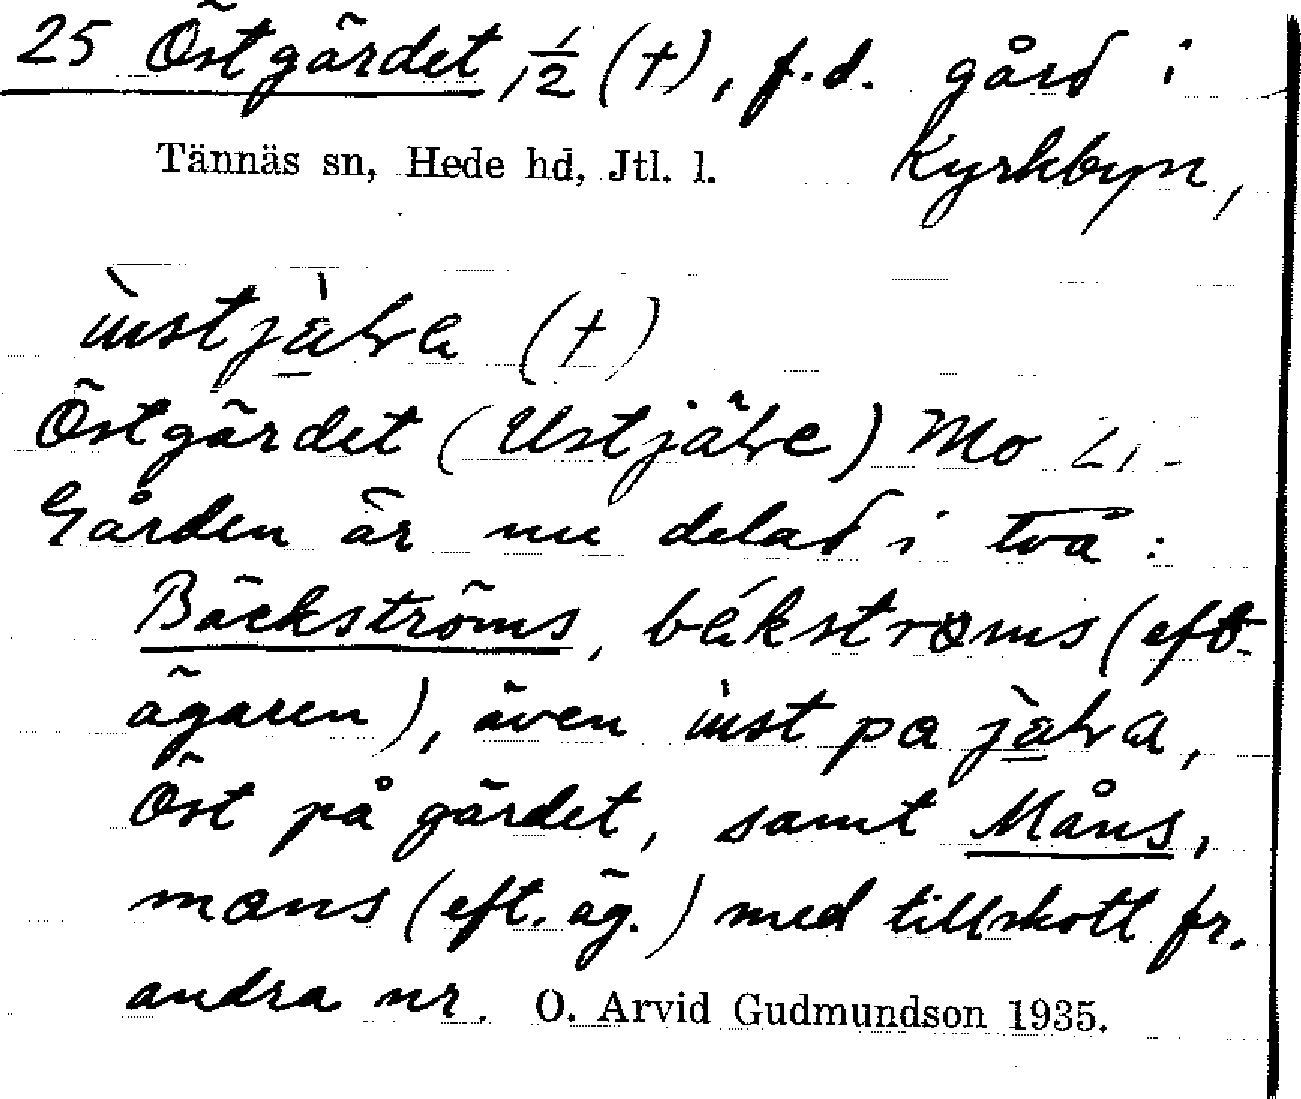 25 Östgärdet 1/2 (†), f.d. gård i
Tännäs sn, Hede hd, Jtl. l. Kyrkbyn,
(†)
Östgärdet (Ustjäḷre) Mo
Gården är nu delad i två:
Bäckströms, (eft
ägaren), även
Öst på gärdet, samt Måns,
mans (eft. äg.) med tillskott fr.
andra nr. O. Arvid Gudmundson 1935.